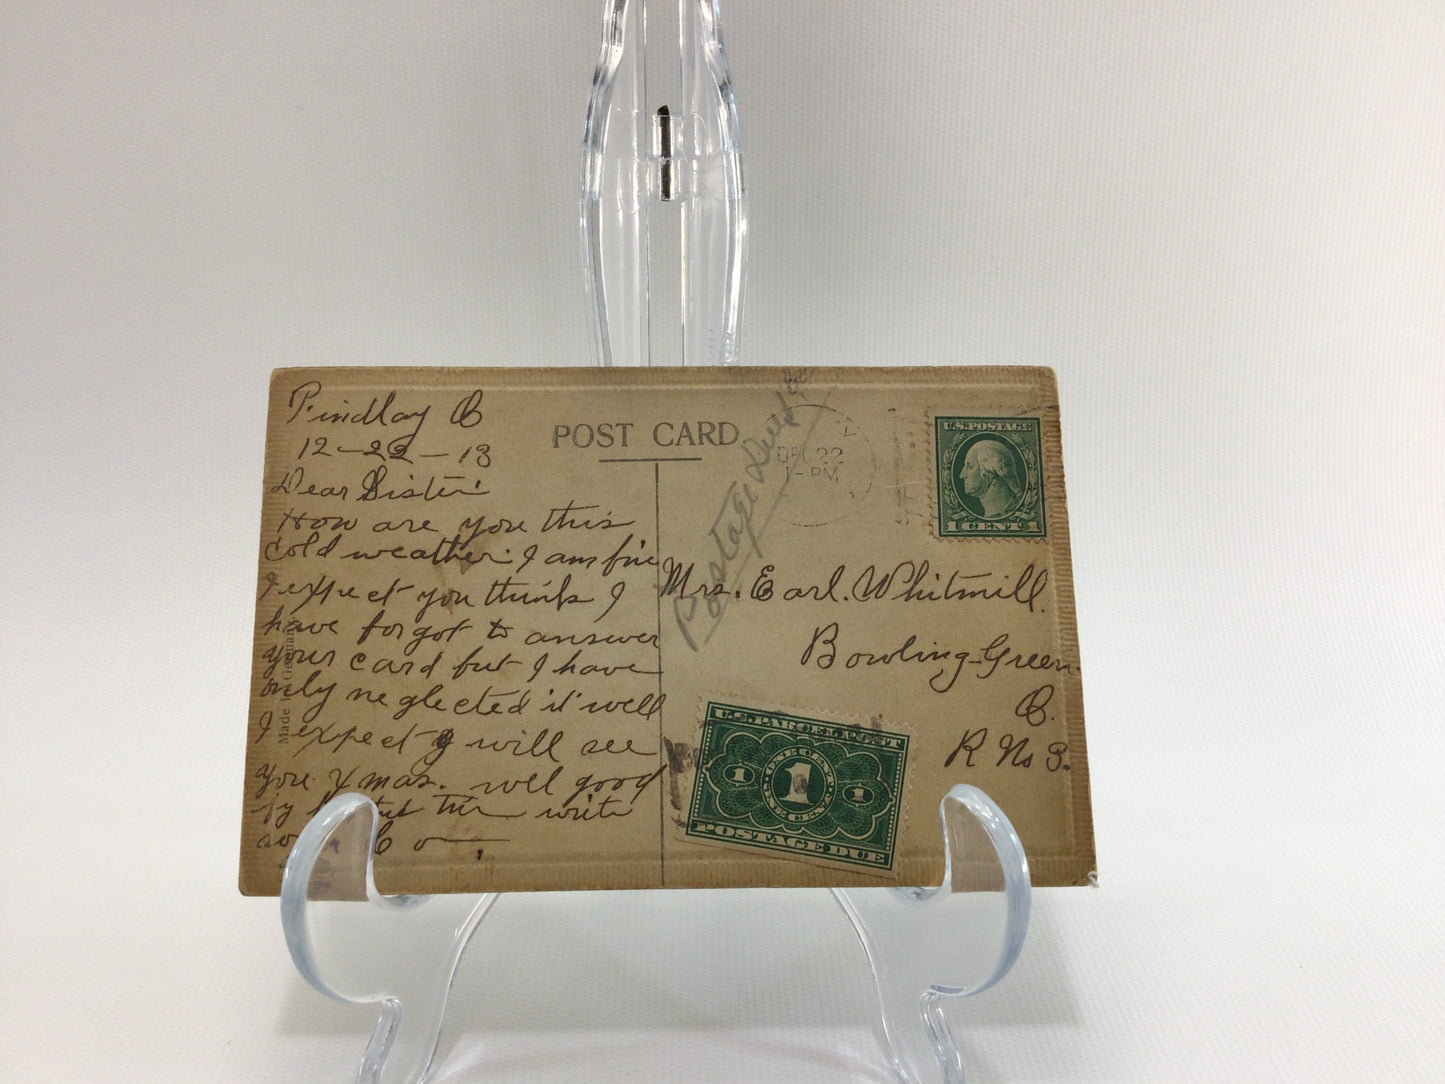 Findlay O
12-22-13
Dear Sister
How are you this
cold weather. I am fine
I expect you think I
have forgot to answer
your card but I have
only neglected it well
I expect I will see
you Xmas. well good
by
write
Made in Germany
POST CARD
Postage Due 1c
DEC 22
1-PM
U.S. POSTAGE
1 CENT 1
Mrs. Earl. Whitmill.
Bowling-Green.
O.
R No 3.
U.S. PARCEL POST
ONE CENT
1 1 1
ONE CENT
POSTAGE DUE